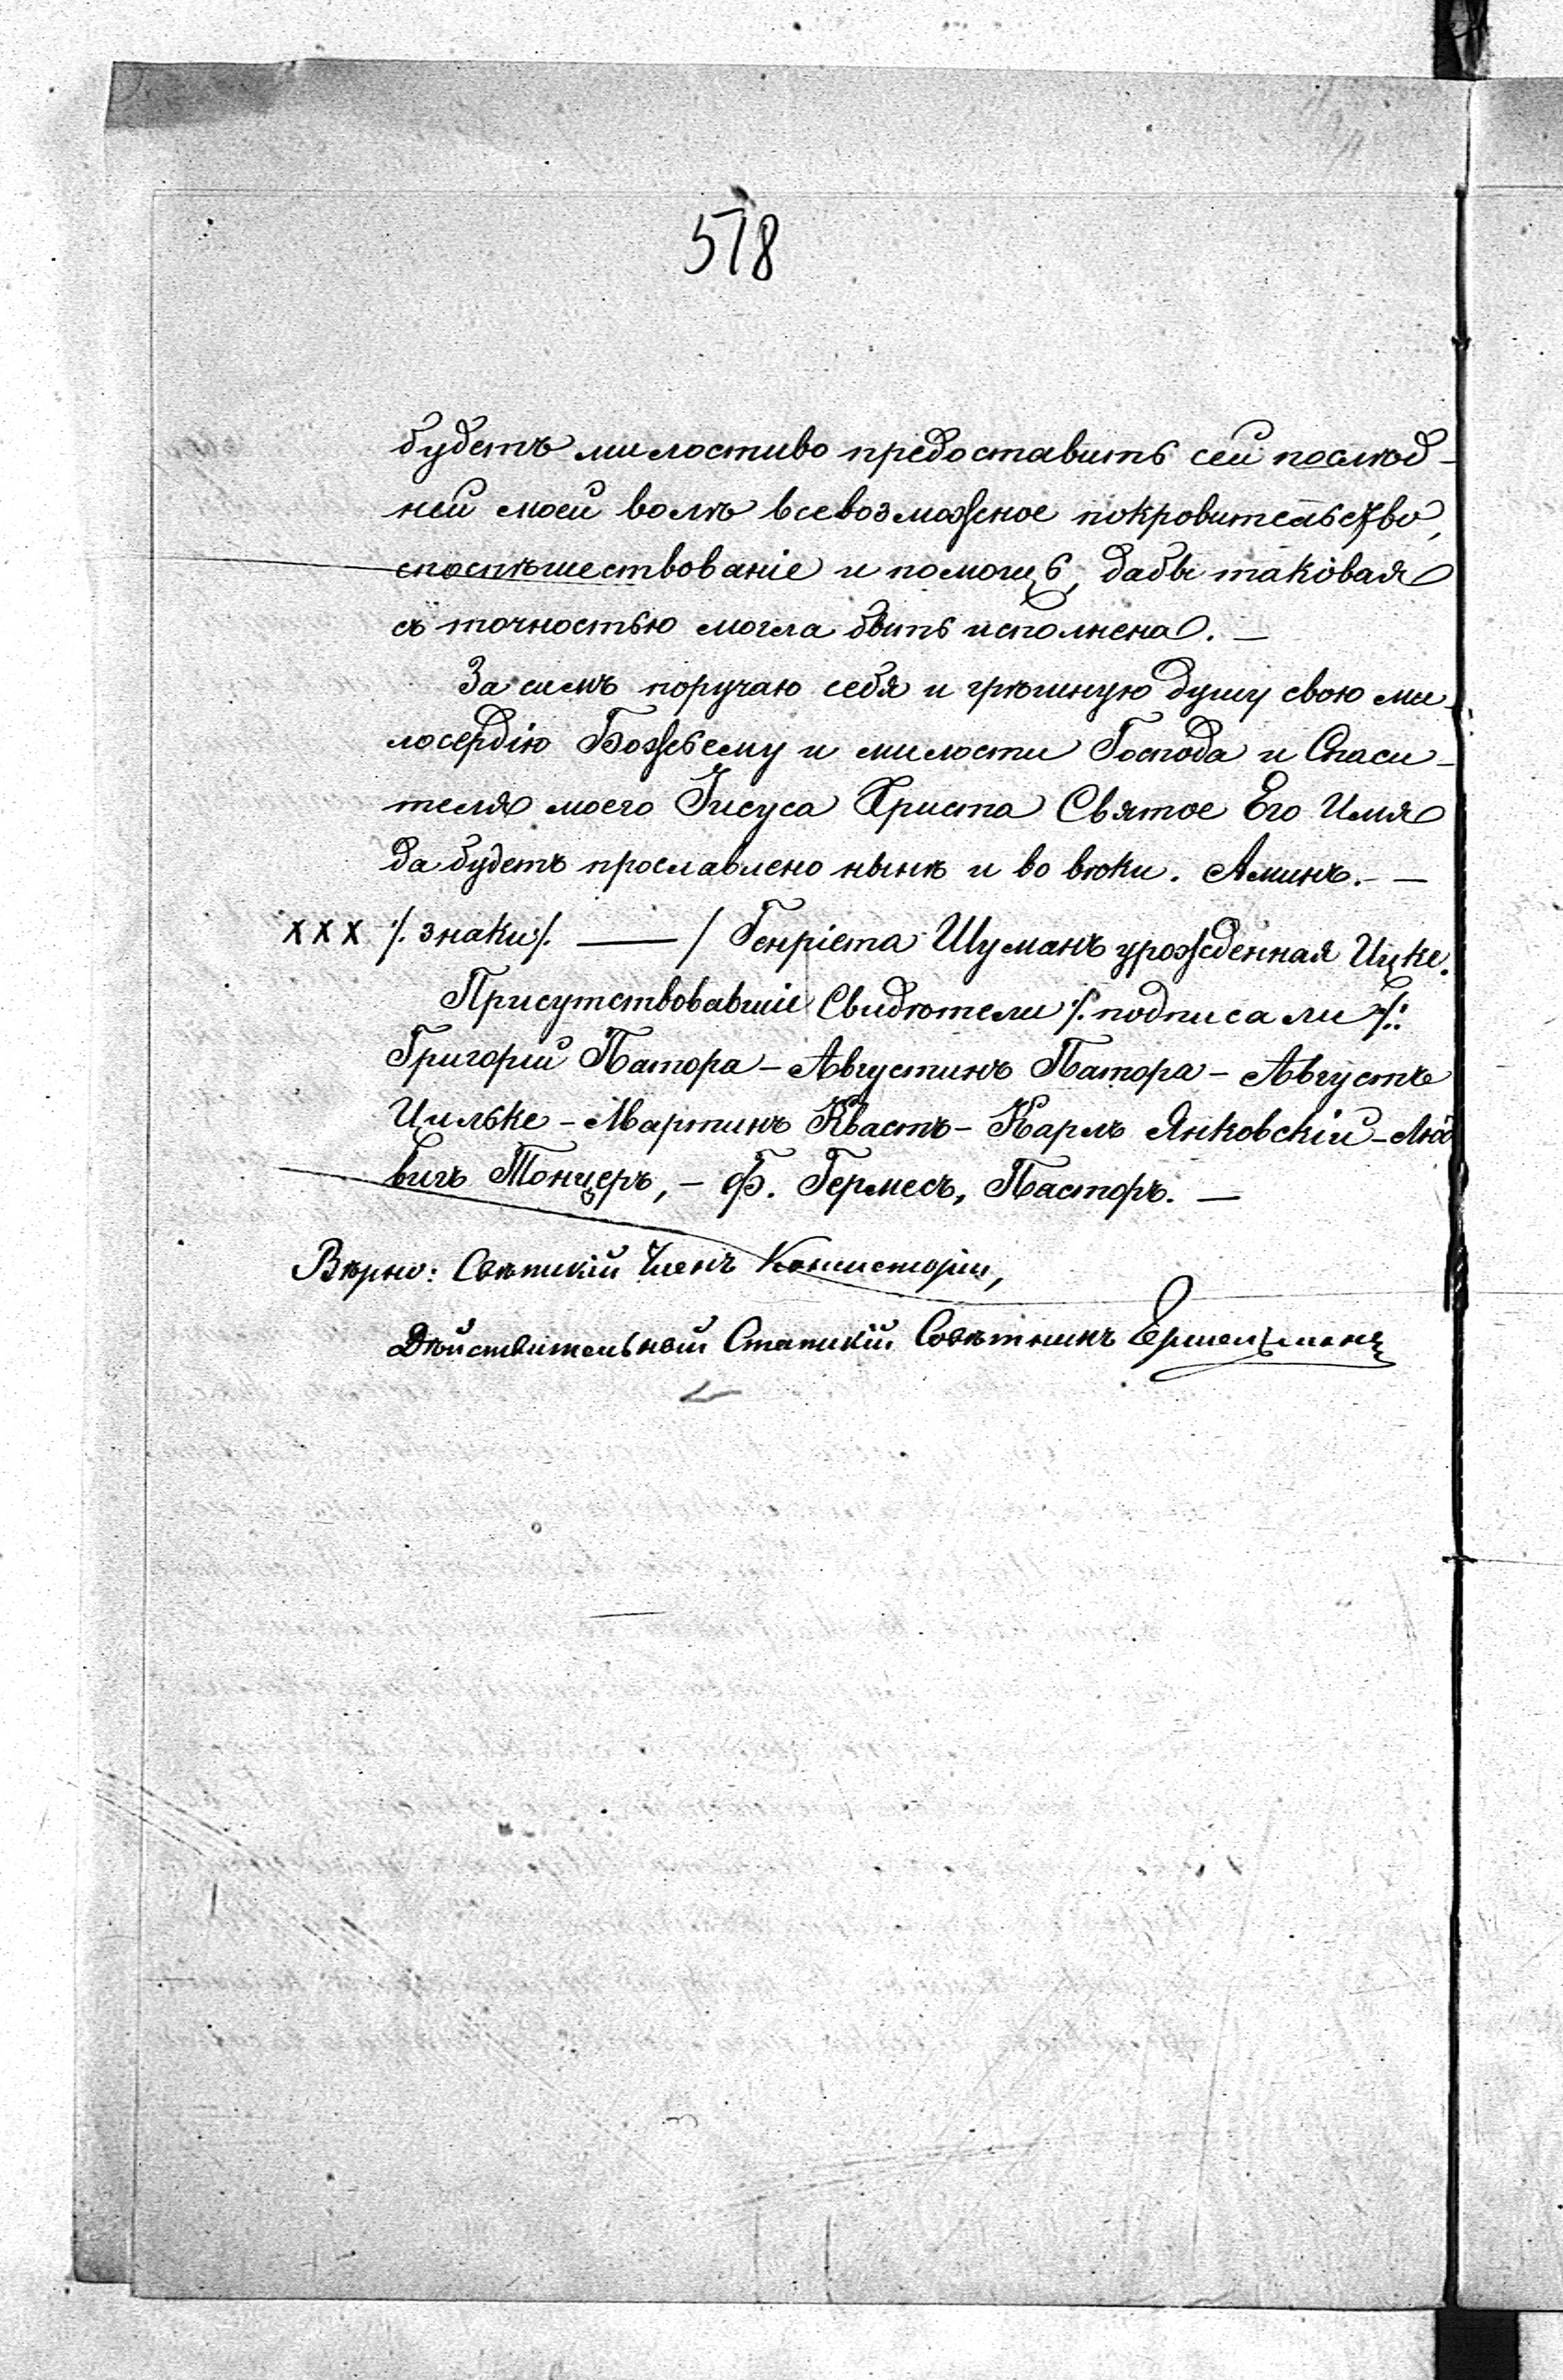 578
будетъ милостиво предоставить сей послѣд-
ней моей волѣ всевозможное покровительство,
споспѣшествованіе и помощь, дабы таковая
съ точностью могла быть исполнена. —
За симъ поручаю себя и грѣшную душу свою ми-
лосердію Божьему и милости Господа и Спаси-
теля моего Іисуса Христа Святое Его Имя
да будетъ прославлено нынѣ и во вѣки. Аминь. —
XXX /. знаки /. — / Генріета Шуманъ урожденная Цуке.
Присутствовавшіе Свидѣтели /. подписали /.:
Григорій Патора - Августинъ Патора - Августъ
Цильке - Мартинъ Квастъ - Карлъ Янковскій - Люд
вигъ Тонцеръ, - Ф. Гермесъ, Пасторъ. —
Вѣрно: Свѣтскій Членъ Консисторіи,
Дѣйствительный Статскій Совѣтникъ